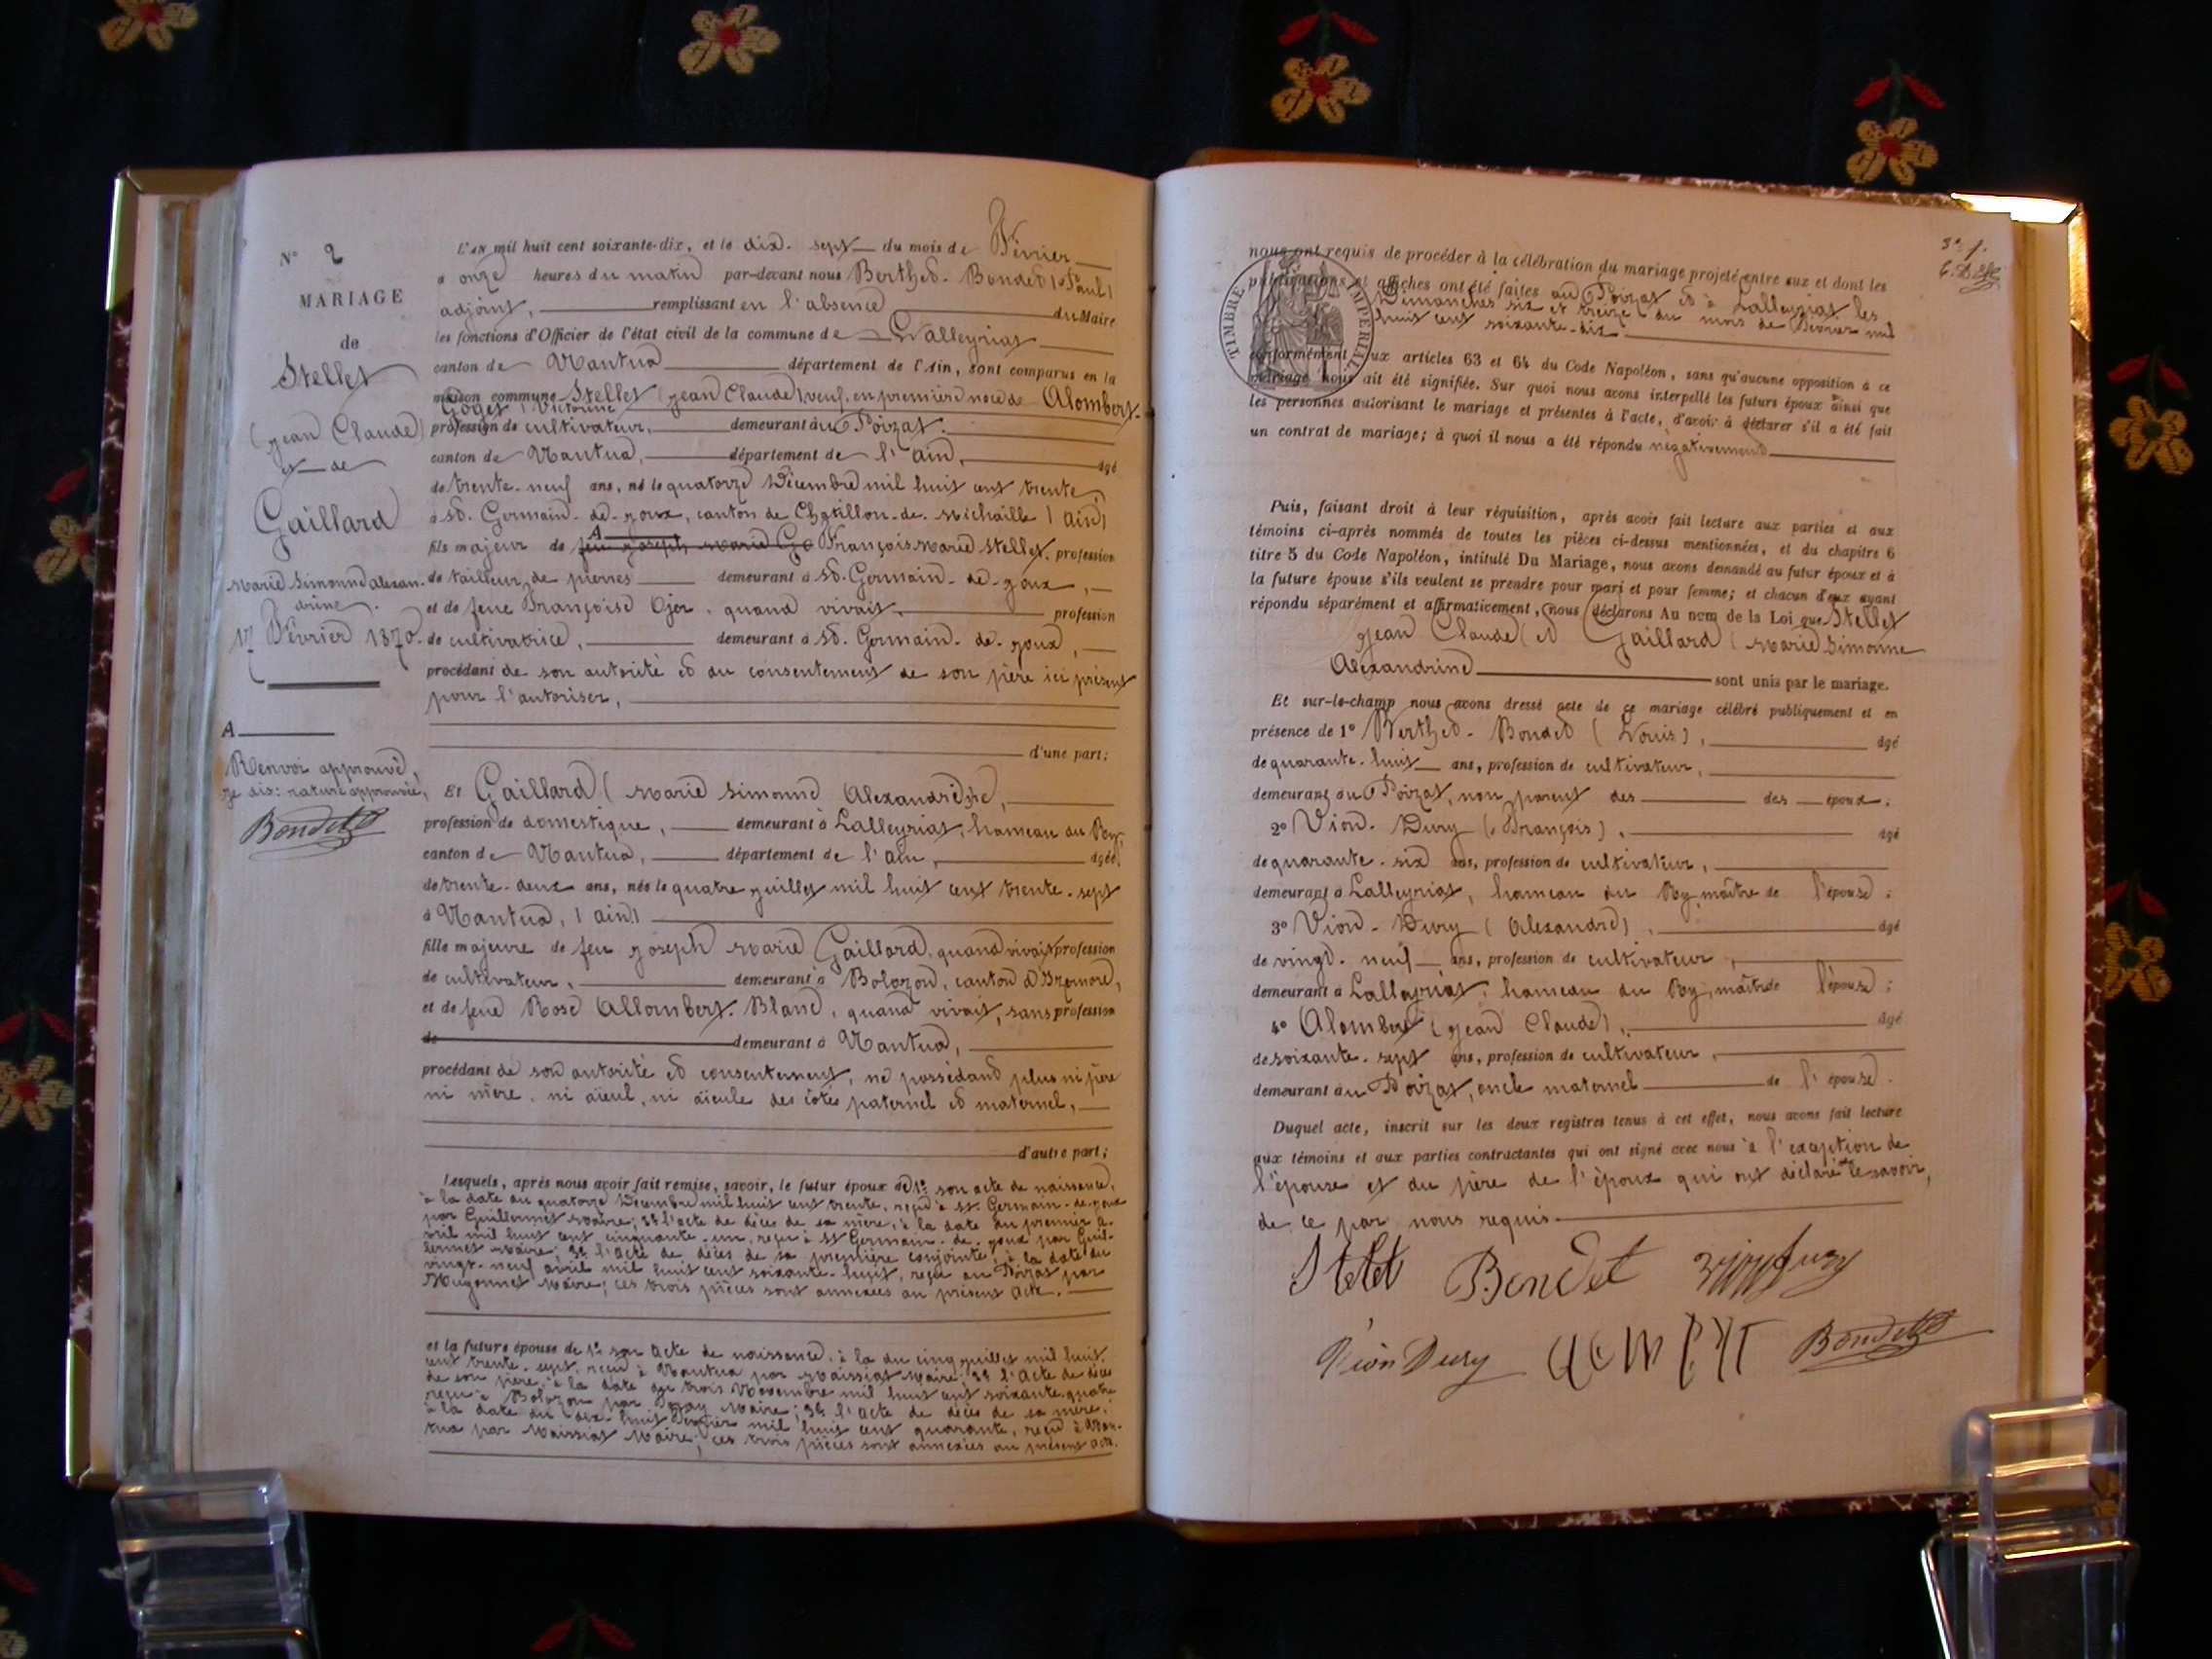 N° 2
MARIAGE
de
Stellet
(Jean Claude)
et de
Gaillard
Marie Simonne Alexan-
drine.
17 Février 1870.
A
Renvoi approuvé,
je dis: rature approuvée,
Bondet
L'AN mil huit cent soixante-dix, et le dix-sept du mois de Février
à onze heures du matin par-devant nous Berthet-Bondet (Paul)
adjoint, remplissant en l'absence du Maire
les fonctions d'Officier de l'état civil de la commune de Lalleyriat
canton de Nantua département de l'Ain, sont comparus en la
maison commune Stellet (Jean Claude) veuf en premièrd noce de Alombert-
Goget (Victorine)
profession de cultivateur, demeurant au Poizat.
canton de Nantua, département de l'Ain, âgé
de trente-neuf ans, né le quatorze Décembre mil huit cent trente
à St. Germain-de-Joux, canton de Châtillon-de-Michaille (Ain)
A
fils majeur de feu Joseph Marie Ga François Marie Stellet, profession
de tailleur de pierres demeurant à St. Germain-de-Joux,
et de feue Françoise Ojer, quand vivait, profession
de cultivatrice, demeurant à St. Germain-de-Joux,
procédant de son autorité et du consentement de son père ici présent
pour l'autoriser,
d'une part;
Et Gaillard (Marie Simonne Alexandrine),
profession de domestique, demeurant à Lalleyriat, hameau du Ry,
canton de Nantua, département de l'Ain, âgée
de trente-deux ans, née le quatre Juillet mil huit cent trente-sept
à Nantua, (Ain)
fille majeure de feu Joseph Marie Gaillard, quand vivait profession
de cultivateur, demeurant à Bolozon, canton d'Izernore,
et de feue Rose Allombert-Blanc, quand vivait, sans profession
de demeurant à Nantua,
procédant de son autorité et consentement, ne possédant plus ni père
ni mère, ni aïeul, ni aïeule des côtés paternel et maternel,
d'autre part;
Lesquels, après nous avoir fait remise, savoir, le futur époux de 1° son acte de naissance,
à la date du quatorze Décembre mil huit cent trente, reçu à St. Germain-de-Joux
par Guillermet Maire; 2° l'acte de décès de sa mère, à la date du premier a-
vril mil huit cent cinquante-un, reçu à St Germain-de-Joux par Guil-
lermet Maire; 3° l'acte de décès de sa première conjointe, à la date du
vingt-neuf avril mil huit cent soixante-huit, reçu au Poizat par
Mugonnet Maire; ces trois pièces sont annexées au présent acte.
et la future épouse de 1° son acte de naissance, à la du cinq Juillet mil huit
cent trente-sept, reçu à Nantua par Maissiat Maire; 2° l'acte de décès
de son père, à la date du trois Novembre mil huit cent soixante-quatre
reçu à Bolozon par Maire; 3° l'acte de décès de sa mère,
à la date du dix-huit Février mil huit cent quarante, reçu à Nan-
tua par Maissiat Maire; ces trois pièces sont annexées au présent acte.
TIMBRE IMPERIAL
nous ont requis de procéder à la célébration du mariage projeté entre eux et dont les
publications et affiches ont été faites au Poizat et à Lalleyriat les
Dimanches six et treize du mois de Février mil
huit cent soixante-dix
conformément aux articles 63 et 64 du Code Napoléon, sans qu'aucune opposition à ce
mariage nous ait été signifiée. Sur quoi nous avons interpellé les futurs époux ainsi que
les personnes autorisant le mariage et présentes à l'acte, d'avoir à déclarer s'il a été fait
un contrat de mariage; à quoi il nous a été répondu négativement
Puis, faisant droit à leur réquisition, après avoir fait lecture aux parties et aux
témoins ci-après nommés de toutes les pièces ci-dessus mentionnées, et du chapitre 6
titre 5 du Code Napoléon, intitulé Du Mariage, nous avons demandé au futur époux et à
la future épouse s'ils veulent se prendre pour mari et pour femme; et chacun d'eux ayant
répondu séparément et affirmativement, nous déclarons Au nom de la Loi que Stellet
(Jean Claude) et Gaillard (Marie Simonne
Alexandrine sont unis par le mariage.
Et sur-le-champ nous avons dressé acte de ce mariage célébré publiquement et en
présence de 1° Berthet-Bondet (Louis), âgé
de quarante-huit ans, profession de cultivateur,
demeurant au Poizat, non parent des des époux;
2° Vion-Dury (François), âgé
de quarante-six ans, profession de cultivateur,
demeurant à Lalleyriat, hameau du Ry, maître de l'épouse;
3° Vion-Dury (Alexandre), âgé
de vingt-neuf ans, profession de cultivateur,
demeurant à Lalleyriat, hameau du Ry, maître de l'épouse;
4° Alombert (Jean Claude), âgé
de soixante-sept ans, profession de cultivateur,
demeurant au Poizat, oncle maternel de l'épouse.
Duquel acte, inscrit sur les deux registres tenus à cet effet, nous avons fait lecture
aux témoins et aux parties contractantes qui ont signé avec nous à l'exception de
l'épouse et du père de l'époux qui ont déclaré ne le savoir,
de ce par nous requis.
Stelet Bondet
Vion Dury Bondet